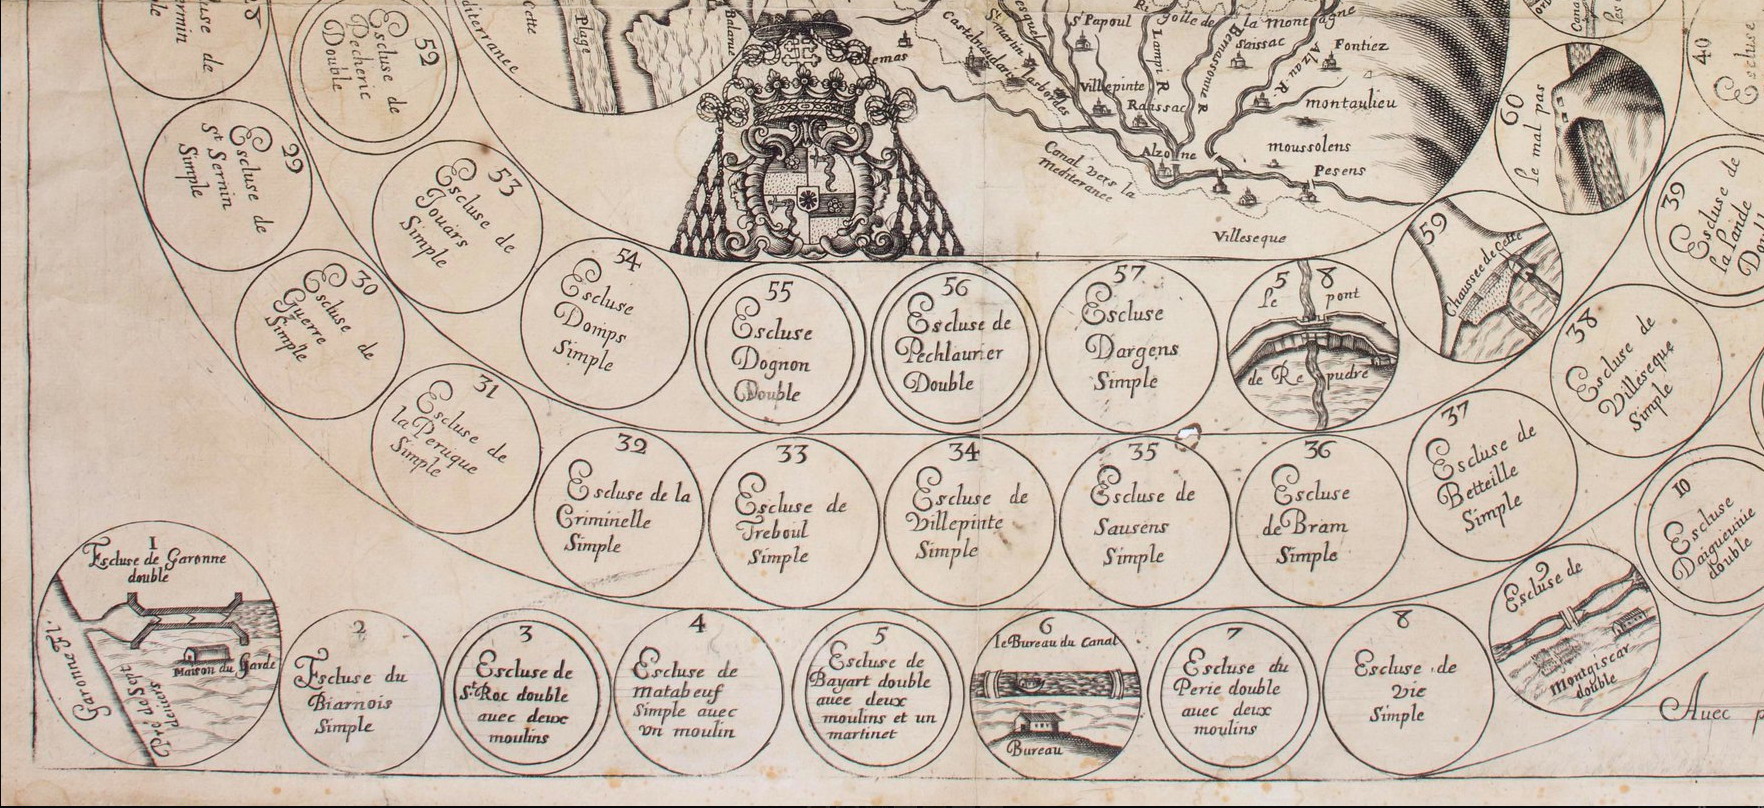 28
luse de
ermin
ble
52
Escluse de
Pecheric
Double
diterranee
Cette
Plage
Balarue
lemas
Castelnaudari
St martin
Lasbordes
St Papoul
Villepinte
Lampi R
Raissac
Bernasonne R
golle de la montagne
Saissac
Alzau R
Fontiez
montaulieu
moussolens
Pesens
Alzone
Canal vers la
Mediterance
Villeseque
60
Le mal pas
40
Escluse
29
Escluse de
St Sernin
Simple
53
Escluse de
Jouars
Simple
54
Escluse
Domps
Simple
55
Escluse
Dognon
Double
56
Escluse de
Pechlaurier
Double
57
Escluse
Dargens
Simple
58
Le pont
de Re pudre
59
Chaussee de Cette
39
Escluse de
la Lande
30
Escluse de
Guerre
Simple
31
Escluse de
la Peruque
Simple
32
Escluse de la
Criminelle
Simple
33
Escluse de
Treboul
Simple
34
Escluse de
Villepinte
Simple
35
Escluse de
Sausens
Simple
36
Escluse
de Bram
Simple
37
Escluse de
Betteille
Simple
38
Escluse de
Villeseque
Simple
10
Escluse
Daigueuiue
double
1
Escluse de Garonne
double
Garonne Fl.
Maison du Garde
Pré de Sept
deniers
2
Escluse du
Biarnois
Simple
3
Escluse de
St. Roc double
auec deux
moulins
4
Escluse de
matabeuf
Simple auec
vn moulin
5
Escluse de
Bayart double
auec deux
moulins et un
martinet
6
le Bureau du Canal
Bureau
7
Escluse du
Perie double
auec deux
moulins
8
Escluse de
Vie
Simple
Escluse de
Montgiscar
double
Auec p